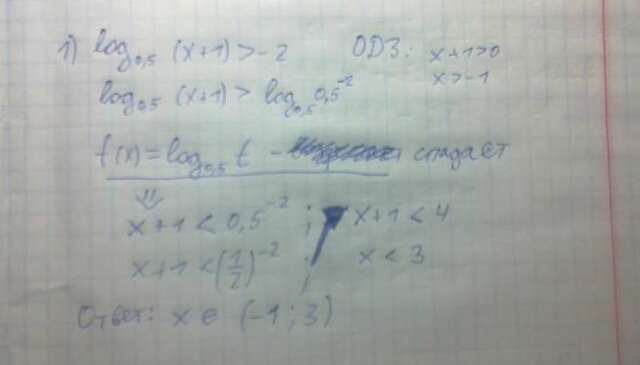 1) log₀,₅ (x+1) > -2 ОДЗ: x+1>0
x>-1
log₀,₅ (x+1) > log₀,₅ 0,5⁻²
f(x) = log₀,₅ t - спадает
x+1 < 0,5⁻² ; x+1 < 4
x+1 < (1/2)⁻² ; x < 3
Ответ: x ∈ (-1; 3)